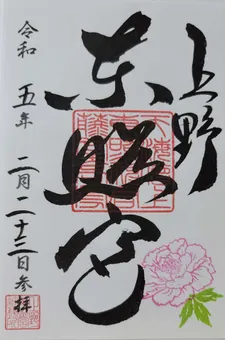 上野
東照宮
令和 五年 二月二十三日参拝